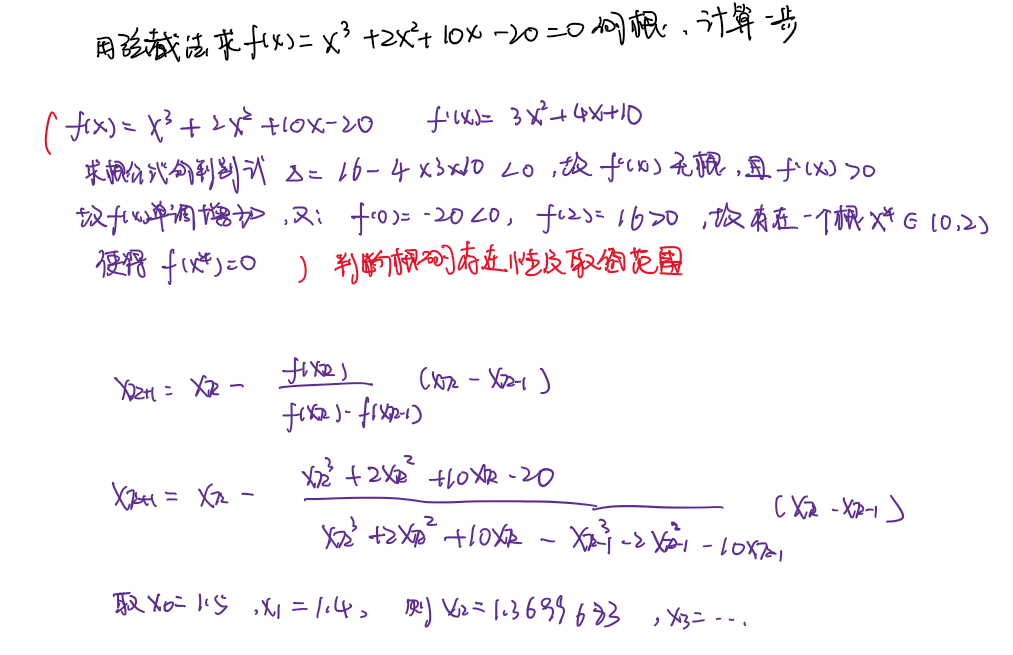 用弦截法求f(x)=x³+2x²+10x-20=0的根，计算一步
( f(x)=x³+2x²+10x-20 f'(x)=3x²+4x+10
求根公式的判别式 Δ=16-4×3×10<0，故f'(x)无根，且f'(x)>0
故f(x)单调增加，又: f(0)=-20<0, f(2)=16>0，故存在一个根x*∈(0,2)
使得 f(x*)=0 ) 判断根的存在性及取值范围
x_{k+1} = x_k - \frac{f(x_k)}{f(x_k)-f(x_{k-1})} (x_k - x_{k-1})
x_{k+1} = x_k - \frac{x_k³+2x_k²+10x_k-20}{x_k³+2x_k²+10x_k-x_{k-1}³-2x_{k-1}²-10x_{k-1}} (x_k - x_{k-1})
取x₀=1.5，x₁=1.4，则x₂=1.3699683，x₃=...